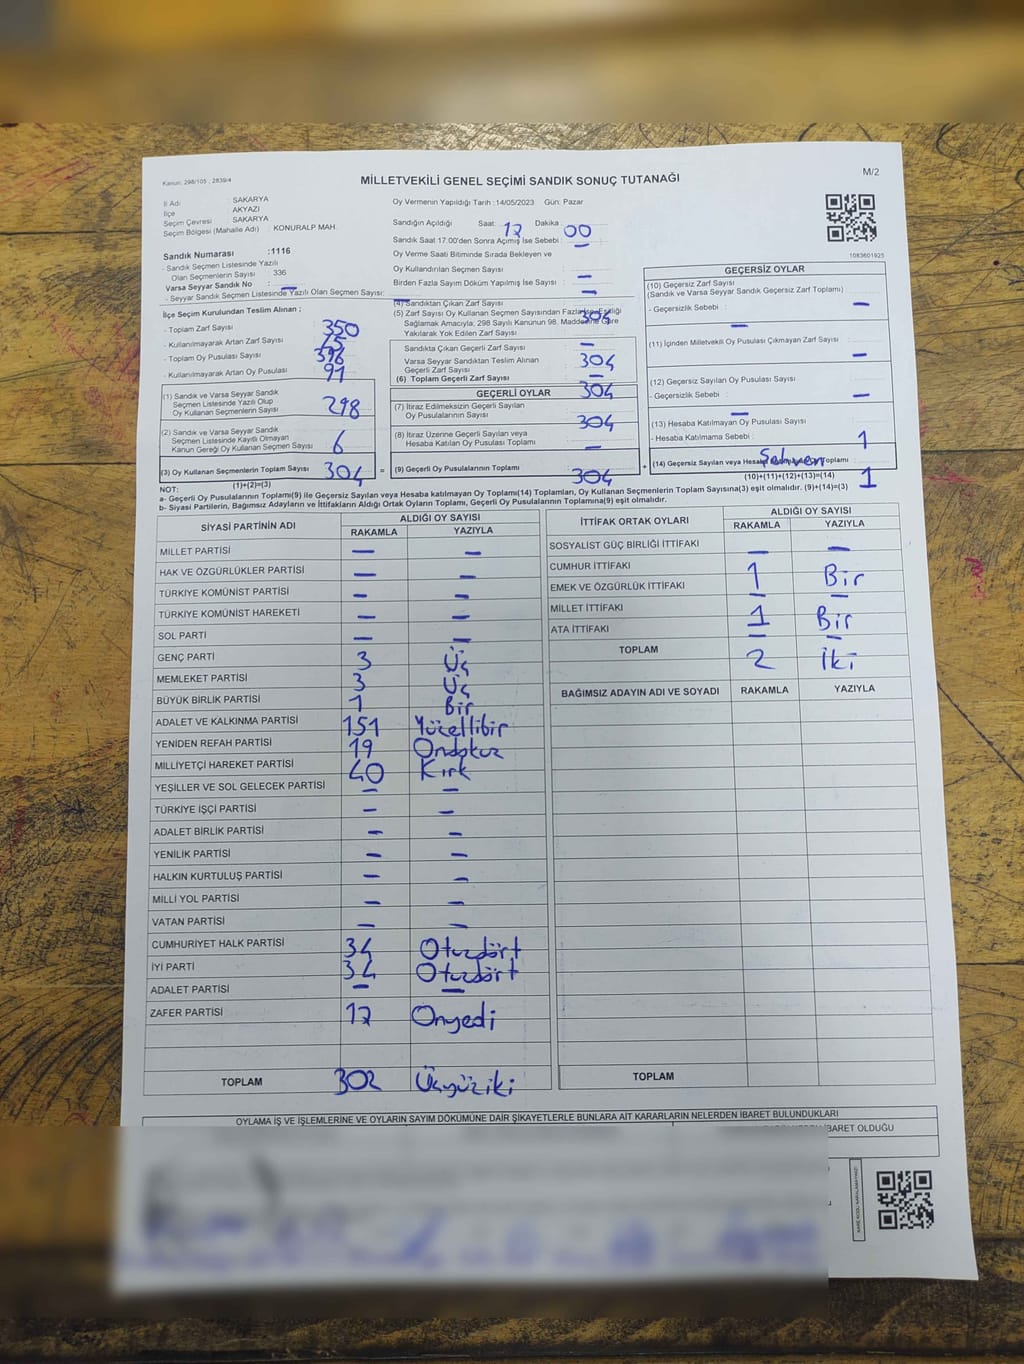 Kanun: 298/105 , 2839/4
MİLLETVEKİLİ GENEL SEÇİMİ SANDIK SONUÇ TUTANAĞI
M/2
İl Adı : SAKARYA
İlçe AKYAZI
Seçim Çevresi : SAKARYA
Seçim Bölgesi (Mahalle Adı) : KONURALP MAH.
Oy Vermenin Yapıldığı Tarih :14/05/2023 Gün: Pazar
Sandığın Açıldığı Saat: 17 Dakika : 00
Sandık Saat 17.00'den Sonra Açımış İse Sebebi : —
Oy Verme Saati Bitiminde Sırada Bekleyen ve
Oy Kullandırılan Seçmen Sayısı : —
Birden Fazla Sayım Döküm Yapılmış İse Sayısı : —
1083601925
Sandık Numarası :1116
- Sandık Seçmen Listesinde Yazılı
Olan Seçmenlerin Sayısı : 336
Varsa Seyyar Sandık No : —
- Seyyar Sandık Seçmen Listesinde Yazılı Olan Seçmen Sayısı: —
İlçe Seçim Kurulundan Teslim Alınan ;
- Toplam Zarf Sayısı : 350
- Kullanılmayarak Artan Zarf Sayısı
- Toplam Oy Pusulası Sayısı
- Kullanılmayarak Artan Oy Pusulası : 91
(1) Sandık ve Varsa Seyyar Sandık
Seçmen Listesinde Yazılı Olup
Oy Kullanan Seçmenlerin Sayısı : 298
(2) Sandık ve Varsa Seyyar Sandık
Seçmen Listesinde Kayıtlı Olmayan
Kanun Gereği Oy Kullanan Seçmen Sayısı : 6
(3) Oy Kullanan Seçmenlerin Toplam Sayısı : 304 =
(1)+(2)=(3)
(4) Sandıktan Çıkan Zarf Sayısı : 304
(5) Zarf Sayısı Oy Kullanan Seçmen Sayısından Fazla İse, Eşitliği
Sağlamak Amacıyla; 298 Sayılı Kanunun 98. Maddesine Göre
Yakılarak Yok Edilen Zarf Sayısı : —
Sandıkta Çıkan Geçerli Zarf Sayısı : 304
Varsa Seyyar Sandıktan Teslim Alınan
Geçerli Zarf Sayısı : —
(6) Toplam Geçerli Zarf Sayısı : 304
GEÇERLİ OYLAR
(7) İtiraz Edilmeksizin Geçerli Sayılan
Oy Pusulalarının Sayısı : 304
(8) İtiraz Üzerine Geçerli Sayılan veya
Hesaba Katılan Oy Pusulası Toplamı : —
(9) Geçerli Oy Pusulalarının Toplamı : 304 +
GEÇERSİZ OYLAR
(10) Geçersiz Zarf Sayısı
(Sandık ve Varsa Seyyar Sandık Geçersiz Zarf Toplamı) : —
- Geçersizlik Sebebi : —
(11) İçinden Milletvekili Oy Pusulası Çıkmayan Zarf Sayısı : —
(12) Geçersiz Sayılan Oy Pusulası Sayısı : —
- Geçersizlik Sebebi : —
(13) Hesaba Katılmayan Oy Pusulası Sayısı : 1
- Hesaba Katılmama Sebebi : Sehven
(14) Geçersiz Sayılan veya Hesaba Toplamı : 1
(10)+(11)+(12)+(13)=(14)
NOT:
a- Geçerli Oy Pusulalarının Toplamı(9) ile Geçersiz Sayılan veya Hesaba katılmayan Oy Toplamı(14) Toplamları, Oy Kullanan Seçmenlerin Toplam Sayısına(3) eşit olmalıdır. (9)+(14)=(3)
b- Siyasi Partilerin, Bağımsız Adayların ve İttifakların Aldığı Ortak Oyların Toplamı, Geçerli Oy Pusulalarının Toplamına(9) eşit olmalıdır.
SİYASİ PARTİNİN ADI ALDIĞI OY SAYISI
RAKAMLA YAZIYLA
MİLLET PARTİSİ — —
HAK VE ÖZGÜRLÜKLER PARTİSİ — —
TÜRKİYE KOMÜNİST PARTİSİ — —
TÜRKİYE KOMÜNİST HAREKETİ — —
SOL PARTİ — —
GENÇ PARTİ 3 Üç
MEMLEKET PARTİSİ 3 Üç
BÜYÜK BİRLİK PARTİSİ 1 Bir
ADALET VE KALKINMA PARTİSİ 151 Yüzellibir
YENİDEN REFAH PARTİSİ 19 Ondokuz
MİLLİYETÇİ HAREKET PARTİSİ 40 Kırk
YEŞİLLER VE SOL GELECEK PARTİSİ — —
TÜRKİYE İŞÇİ PARTİSİ — —
ADALET BİRLİK PARTİSİ — —
YENİLİK PARTİSİ — —
HALKIN KURTULUŞ PARTİSİ — —
MİLLİ YOL PARTİSİ — —
VATAN PARTİSİ — —
CUMHURİYET HALK PARTİSİ 34 Otuzdört
İYİ PARTİ 34 Otuzdört
ADALET PARTİSİ — —
ZAFER PARTİSİ 17 Onyedi
TOPLAM 302 Üçyüziki
İTTİFAK ORTAK OYLARI ALDIĞI OY SAYISI
RAKAMLA YAZIYLA
SOSYALİST GÜÇ BİRLİĞİ İTTİFAKI — —
CUMHUR İTTİFAKI 1 Bir
EMEK VE ÖZGÜRLÜK İTTİFAKI — —
MİLLET İTTİFAKI 1 Bir
ATA İTTİFAKI — —
TOPLAM 2 İki
BAĞIMSIZ ADAYIN ADI VE SOYADI RAKAMLA YAZIYLA
TOPLAM
OYLAMA İŞ VE İŞLEMLERİNE VE OYLARIN SAYIM DÖKÜMÜNE DAİR ŞİKAYETLERLE BUNLARA AİT KARARLARIN NELERDEN İBARET BULUNDUKLARI
İBARET OLDUĞU